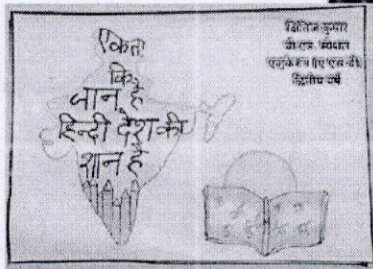 एकता
कि
जान है
हिन्दी देश की
शान है
क्षितिज कुमार
बी.एड. स्पेशल
एजुकेशन (ए एस डी)
द्वितीय वर्ष